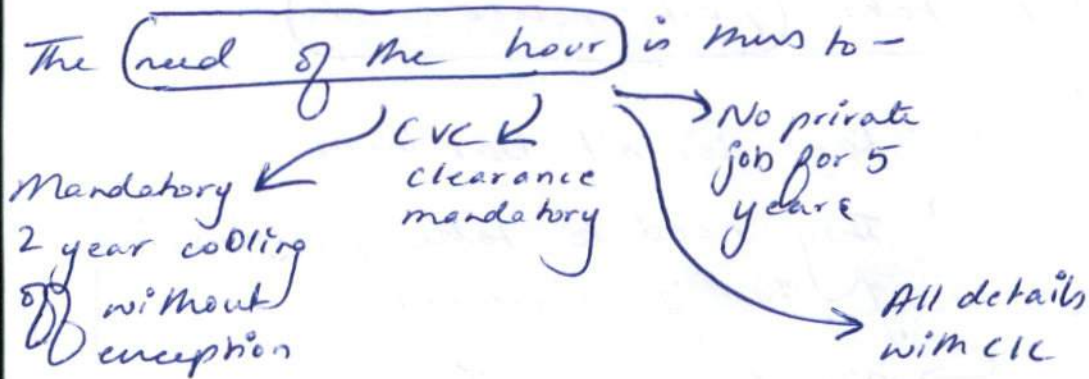 The need of the hour is thus to -
Mandatory
2 year cooling
off without
exception
CVC
clearance
mandatory
No private
job for 5
years
All details
with CIC